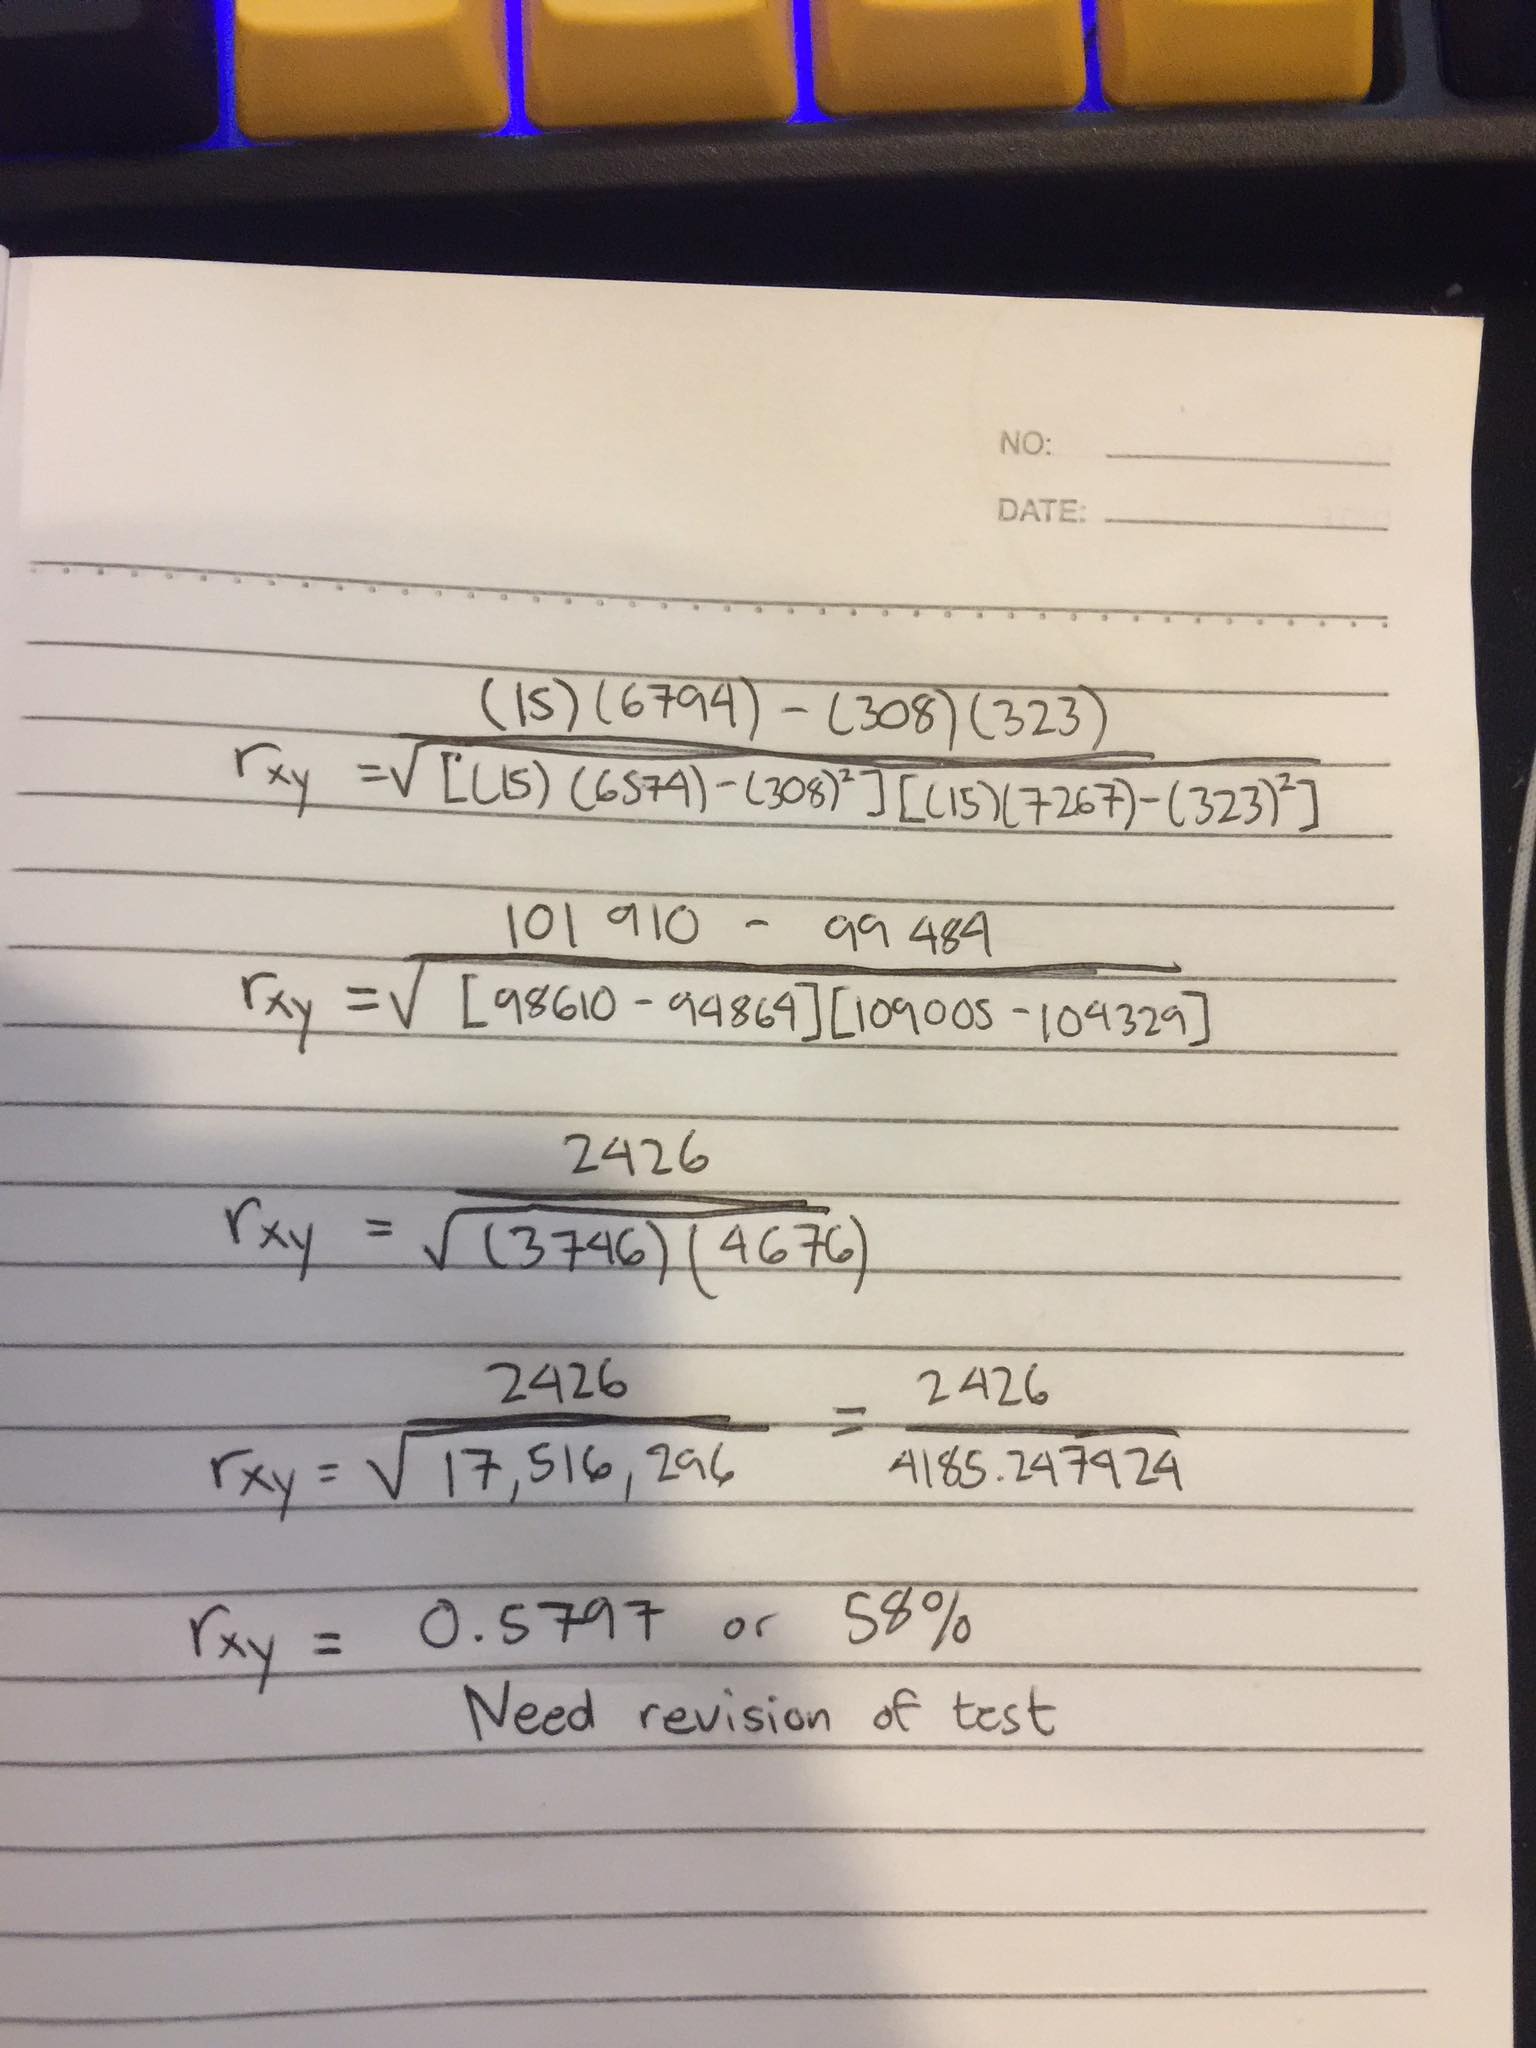 NO:
DATE:
(15)(6794) - (308)(323)
rxy = √[(15)(6574)-(308)²][(15)(7267)-(323)²]
101 910 - 99 484
rxy = √[98610-94864][109005-104329]
2426
rxy = √(3746)(4676)
2426 = 2426
rxy = √17,516,296 4185.247424
rxy = 0.5797 or 58%
Need revision of test